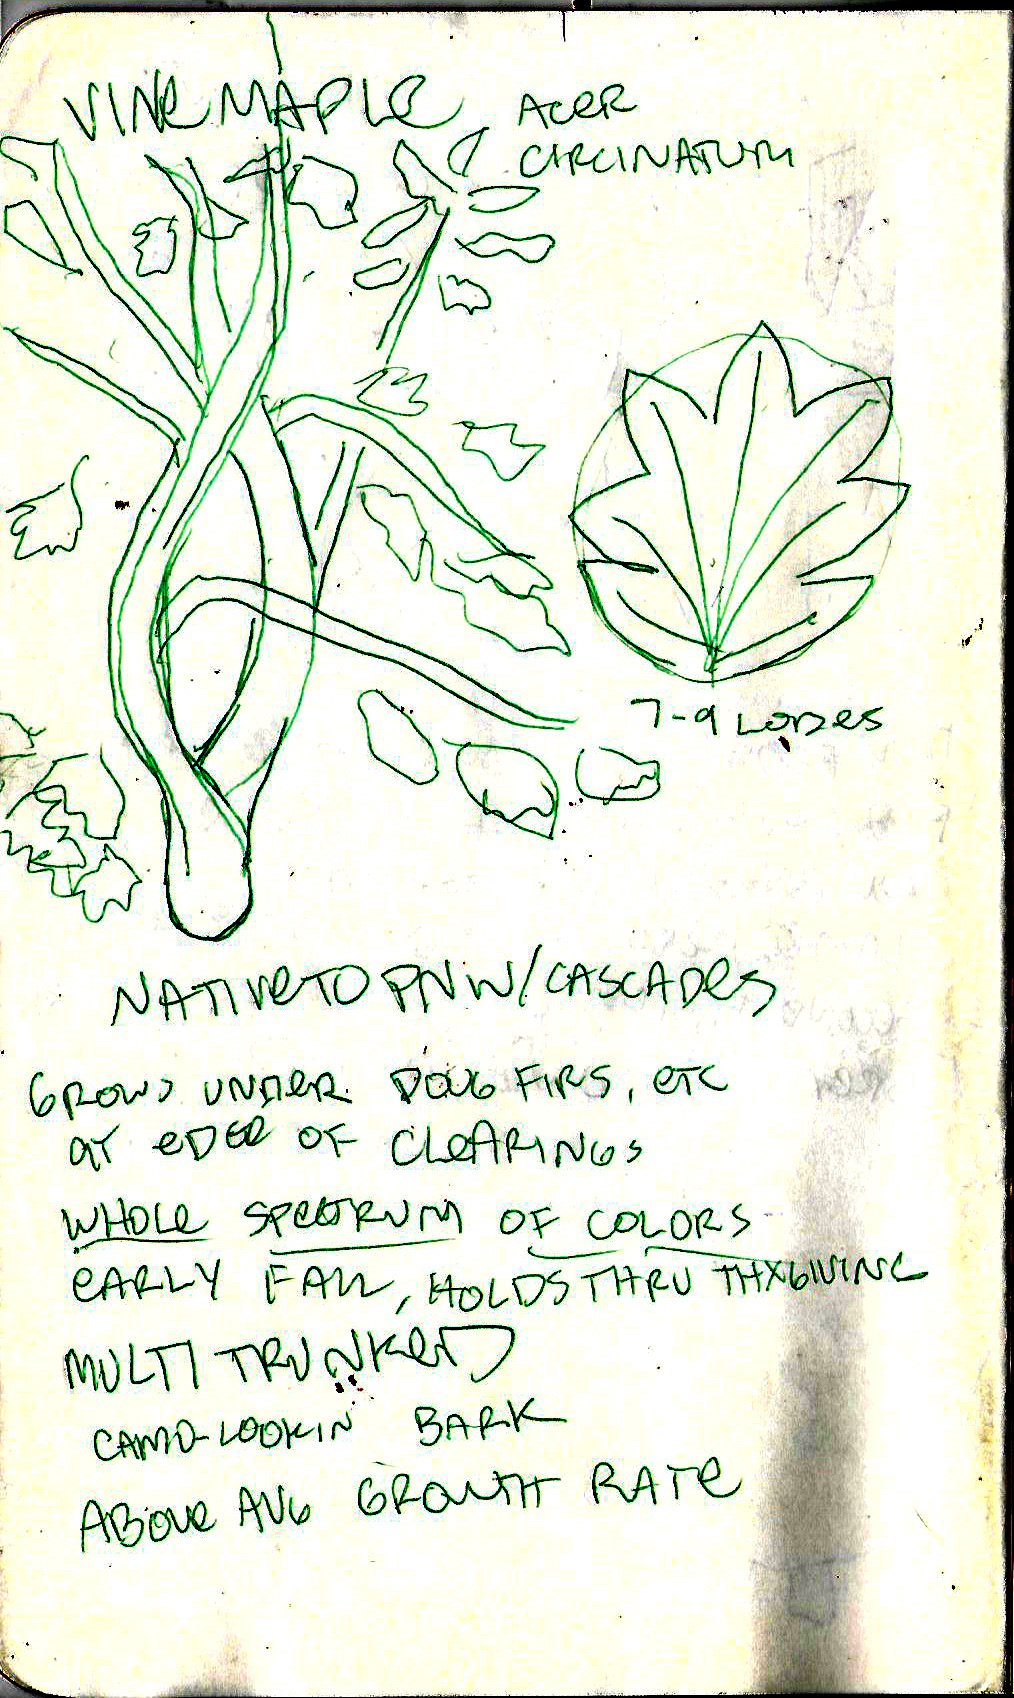 VINE MAPLE
ACER
CIRCINATUM
7-9 LOBES
NATIVE TO PNW/CASCADES
GROWS UNDER DOUG FIRS, ETC
AT EDGE OF CLEARINGS
WHOLE SPECTRUM OF COLORS
EARLY FALL, HOLDS THRU THXGIVING
MULTI TRUNKED
CAMO-LOOKIN BARK
ABOVE AVG GROWTH RATE